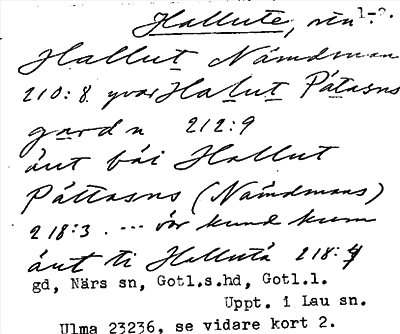 Hallute, 1-2.
Hallut Nämdmans
210:8 yvar Halut Pátasns
gard n 212:9
áut bái Hallut
Páttasns (Nämdmans)
218:3. ... kund kum
áut ti Hallutá 218:4
gd, Närs sn, Gotl.s.hd, Gotl.l.
Uppt. i Lau sn.
Ulma 23236, se vidare kort 2.